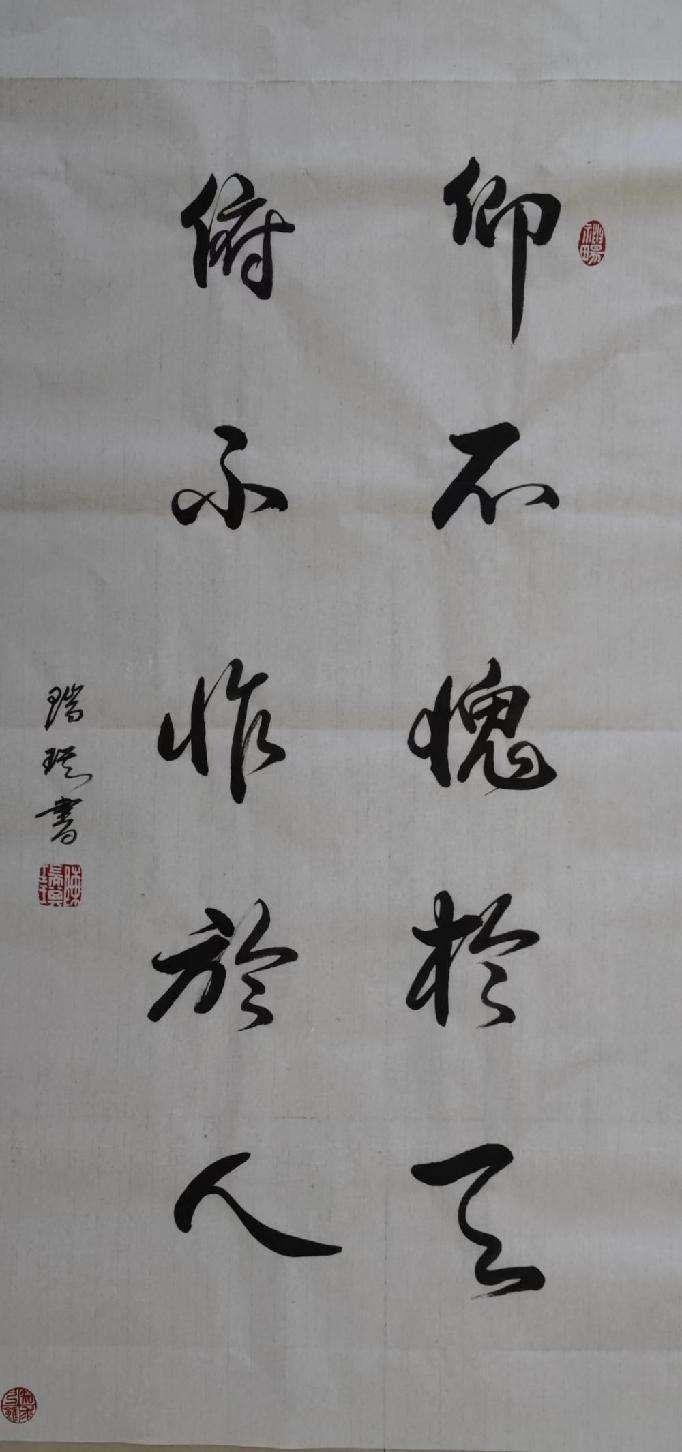 仰不愧於天
俯不怍於人
瑞琪書